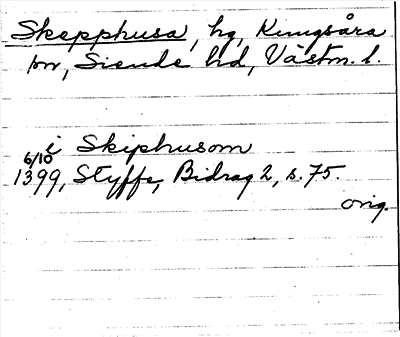 Skepphusa, hg, Kungsåra
sn, Siende hd, Västm. l.
i Skiphusom
6/10 1399, Styffe, Bidrag 2, s. 75.
orig.